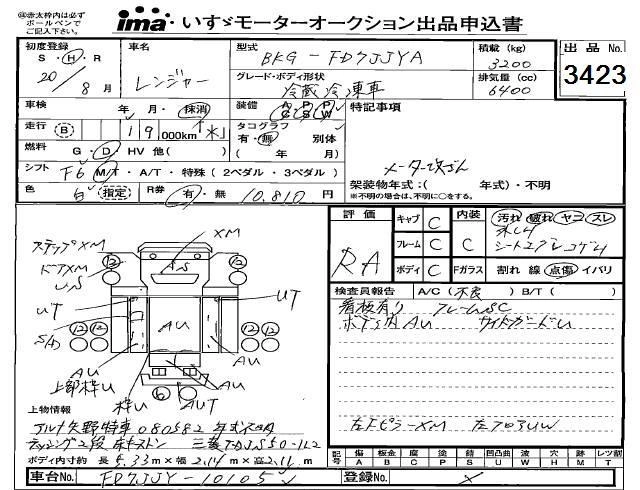 ㊟赤太枠内は必ず
ボールペンで
ご記入下さい。
ima いすゞモーターオークション出品申込書
初度登録 車名 型式 積載 (kg) 出品No.
S・H・R レンジャー BKG-FD7JJYA 3200 3423
20/8月 グレード・ボディ形状 排気量 (cc)
冷蔵冷凍車 6400
車検 年 月・抹消 装備 A C P S P W 特記事項
走行 (B) 19 000km タコグラフ
有・無 別体
燃料 G・D・HV 他( ) ( 年 月)
シフト F6 M/T・A/T・特殊 (2ペダル・3ペダル) メーター改ざん
色 白 (指定) R券 有・無 10,810円 架装物年式:( 年式)・不明
※不明の場合は、不明に○をする。
評価 キャブ C 内装 汚れ 破れ ヤニ スレ
RA フレーム C C
ボディ C Fガラス 割れ 線 点傷 イバリ
ステップXM XM
ドアXM
AS
UT UT
AU AU
S/D
AU AU
上部枠U 枠U AUT
検査員報告 A/C (不良) B/T ( )
看板有り フレームSC
ボデー内AU サイドガードU
左F ピラーXM
上物情報
アルナ矢野特車 080582 年式不明
三菱TDJS50
ボディ内寸約 長 5.33m×幅 2.14m×高 2.11m
記号 傷 板金 腐 凹 錆 凹凸曲 波 穴 跡 レツ前
A B C P S U W H M T
車台No. FD7JJY-10105 登録No.